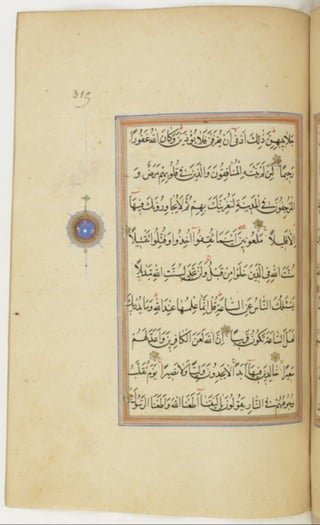 جَلَابِيبِهِنَّ ذَلِكَ أَدْنَى أَنْ يُعْرَفْنَ فَلَا يُؤْذَيْنَ وَكَانَ اللهُ غَفُورًا
رَحِيمًا لَئِنْ لَمْ يَنْتَهِ الْمُنَافِقُونَ وَالَّذِينَ فِي قُلُوبِهِمْ مَرَضٌ وَ
الْمُرْجِفُونَ فِي الْمَدِينَةِ لَنُغْرِيَنَّكَ بِهِمْ ثُمَّ لَا يُجَاوِرُونَكَ فِيهَا
إِلَّا قَلِيلًا مَلْعُونِينَ أَيْنَمَا ثُقِفُوا أُخِذُوا وَقُتِّلُوا تَقْتِيلًا
سُنَّتَ اللهِ فِي الَّذِينَ خَلَوْا مِنْ قَبْلُ وَلَنْ تَجِدَ لِسُنَّتِ اللهِ تَبْدِيلًا
يَسْئَلُكَ النَّاسُ عَنِ السَّاعَةِ قُلْ إِنَّمَا عِلْمُهَا عِنْدَ اللهِ وَمَا يُدْرِيكَ
لَعَلَّ السَّاعَةَ تَكُونُ قَرِيبًا إِنَّ اللهَ لَعَنَ الْكَافِرِينَ وَأَعَدَّ لَهُمْ
سَعِيرًا خَالِدِينَ فِيهَا أَبَدًا لَا يَجِدُونَ وَلِيًّا وَلَا نَصِيرًا يَوْمَ تُقَلَّبُ
وُجُوهُهُمْ فِي النَّارِ يَقُولُونَ يَا لَيْتَنَا أَطَعْنَا اللهَ وَأَطَعْنَا الرَّسُولَا